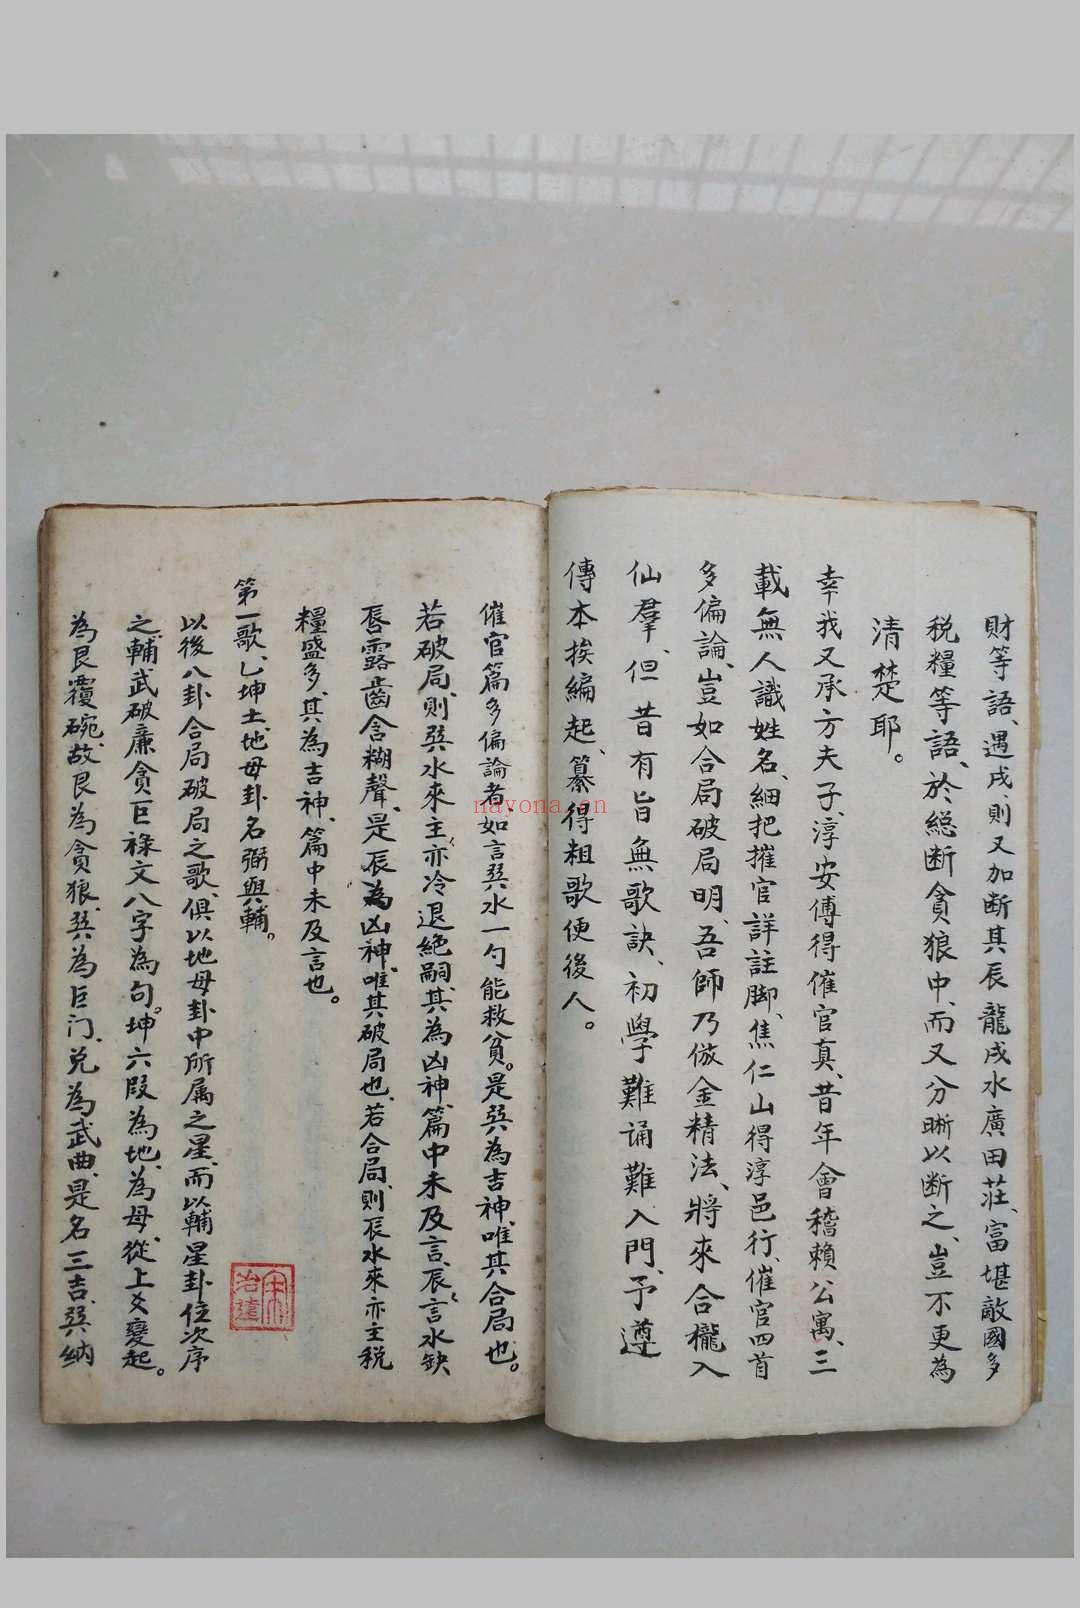 財等語、遇戌、則又加断其辰龍戌水廣田莊、富堪敵國多
税糧等語、於縂断貪狼中、而又分晰以断之、豈不更為
清楚耶。
幸我又承方夫子、淳安傅得催官真、昔年會稽賴公寓、三
載無人識姓名、細把摧官詳註脚、焦仁山得淳邑行、催官四首
多偏論、豈如合局破局明、吾師乃倣金精法、將來合櫳入
仙羣、但昔有旨無歌訣、初學難誦難入門、予遵
傳本挨編起、纂得粗歌便後人。
催官篇多偏論者、如言巽水一勺能救貧。是巽為吉神、唯其合局也。
若破局、則巽水來、主亦冷退絶嗣、其為凶神、篇中未及言、辰、言水缺
唇露齒含糊聲、是辰為凶神、唯其破局也、若合局、則辰水來亦主税
糧盛多、其為吉神、篇中未及言也。
第一歌、乙坤土、地母卦名弼與輔。
以後八卦合局破局之歌、俱以地母卦中所属之星、而以輔星卦位次序
之、輔武破廉貪巨祿文八字為句。坤六段為地、為母、從上爻變起。
為艮覆碗、故艮為貪狼、巽為巨门、兌為武曲、是名三吉、巽納
宋治達
nayona.cn